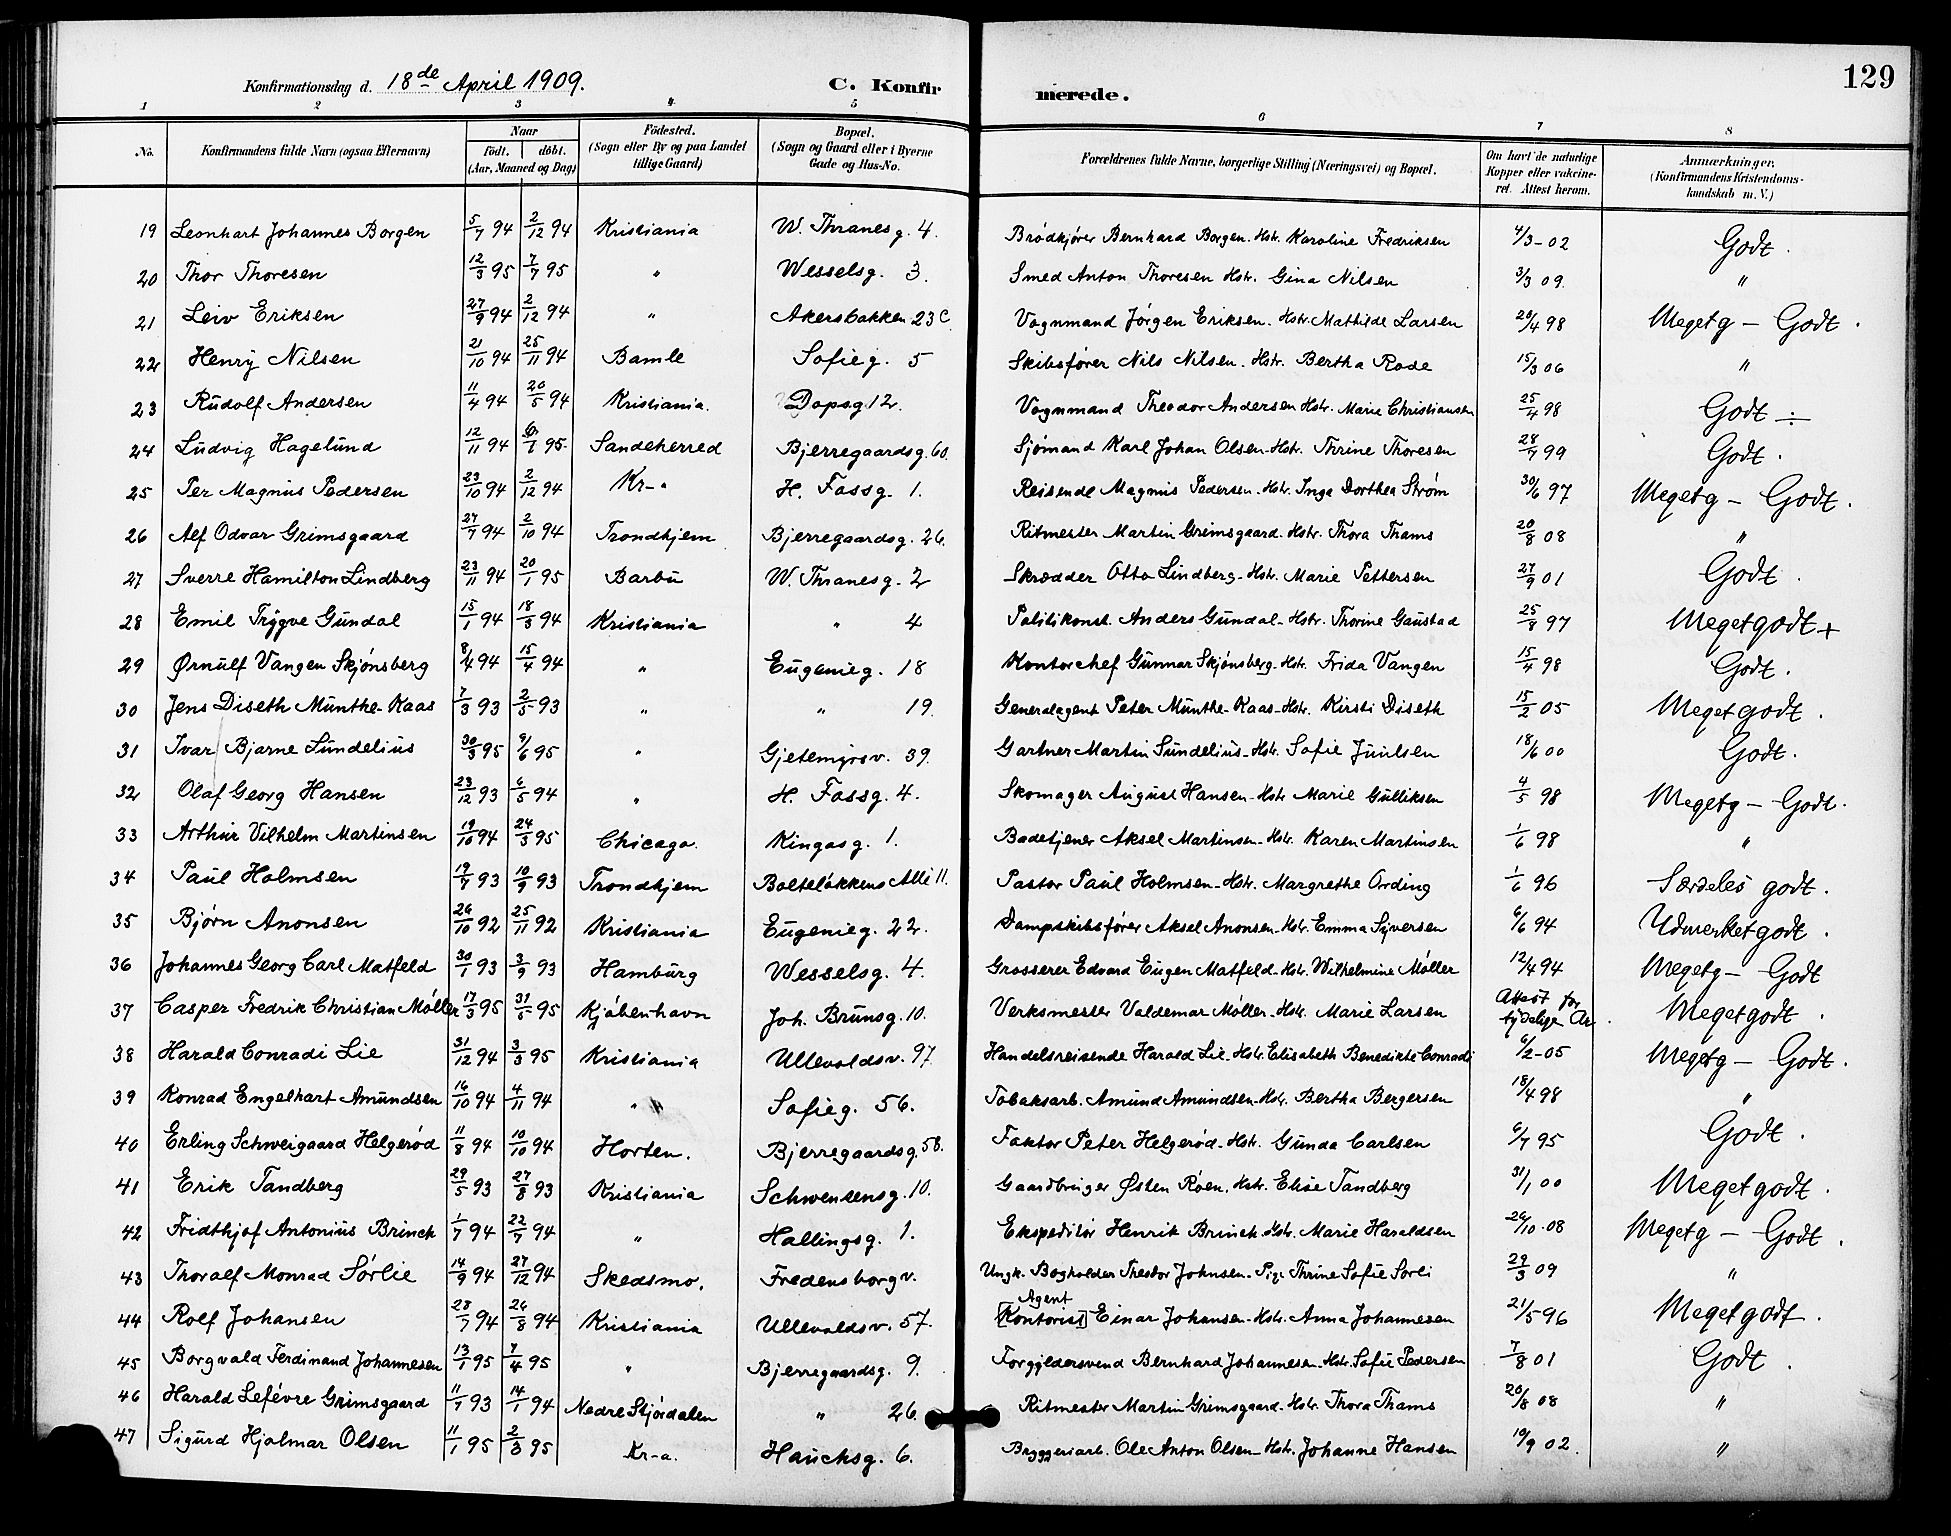 129
Konfirmationsdag d. 18de April 1909. C. Konfirmerede.
1 2 3 4 5 6 7 8
No. Konfirmandens fulde Navn (ogsaa Efternavn) Naar født. døbt. (Aar, Maaned og Dag) Fødested. (Sogn eller By og paa Landet tillige Gaard) Bopæl. (Sogn og Gaard eller i Byerne Gade og Hus-No. Forældrenes fulde Navne, borgerlige Stilling (Næringsvei) og Bopæl. Om havt de naturlige Kopper eller vakcineret. Attest herom. Anmærkninger. (Konfirmandens Kristendomskundskab m. V.)
19 Leonhart Johannes Borgen 5/7 94 2/12 94 Kristiania W. Thranesg. 4. Brødkjører Bernhard Borgen. Hstr. Karoline Fredriksen 4/3-02 Godt.
20 Thor Thoresen 12/3 95 7/7 95 " Wesselsg. 3. Smed Anton Thoresen Hstr. Gina Nilsen 3/3 09. "
21 Leiv Eriksen 27/9 94 2/12 94 " Akersbakken 23c Vognmand Jörgen Eriksen. Hstr. Mathilde Larsen 20/4 98 Megetg - Godt.
22 Henry Nilsen 21/10 94 25/11 94 Bamle Sofieg. 5 Skibsfører Nils Nilsen. Hstr. Bertha Rode 15/3 06 "
23 Rudolf Andersen 11/4 94 20/5 94 Kristiania. Dopsg. 12. Vognmand Theodor Andersen Hstr. Marie Christiansen 25/4 98 Godt ÷
24 Ludvig Hagelund 12/11 94 6/1 95. Sandeherred Bjerregaardsg. 60. Sjömand Karl Johan Olsen - Hstr. Thrine Thoresen 28/7 99 Godt.
25 Per Magnus Pedersen 23/10 94 2/12 94 Kr-a H. Fossg. 1. Reisende Magnus Pedersen. Hstr. Inga Dorthea Strøm 30/6 97 Megetg - Godt.
26 Alf Odvar Grimsgaard 27/7 94 2/10 94 Trondhjem Bjerregaardsg. 26. Ritmester Martin Grimsgaard. Hstr. Thora Thams 20/8 08 "
27 Sverre Hamilton Lindberg 23/11 94 20/1 95 Barbu W. Thranesg. 2 Skrædder Otto Lindberg - Hstr. Marie Pettersen 27/9 01 Godt.
28 Emil Trygve Gundal 15/1 94 18/3 94 Kristiania " 4 Politikonst. Anders Gundal - Hstr. Thorine Gaustad 25/8 97 Megetgodt+
29 Ørnulf Vangen Skjönsberg 8/4 94 15/4 94 " Eugenieg. 18 Kontorchef Gunnar Skjönsberg - Hstr. Frida Vangen 15/4 98 Godt.
30 Jens Diseth Munthe-Kaas 7/3 93 2/5 93 " " 19. Generalagent Peter Munthe-Kaas - Hstr. Kirsti Diseth 15/2 05 Megetgodt.
31 Ivar Bjarne Sundelius 30/3 95 9/6 95 " Gjetemyrsv. 39. Gartner Martin Sundelius - Hstr. Sofie Juulsen 18/6 00 Godt.
32 Olaf Georg Hansen 23/12 93 6/5 94 " H. Fossg. 4. Skomager August Hansen - Hstr Marie Gulliksen 4/5 98 Megetg - Godt.
33 Arthur Vilhelm Martinsen 19/10 94 24/3 95 Chicago. Kingosg. 1. Badetjener Aksel Martinsen - Hstr. Karen Martinsen 1/6 98 "
34 Paul Holmsen 19/7 93 10/9 93 Trondhjem Bolteløkkens Alle 11. Pastor Paul Holmsen - Hstr. Margrethe Ording 1/6 96 Særdeles godt.
35 Bjørn Anonsen 26/10 92 25/11 92 Kristiania Eugenieg. 22. Dampskibsfører Aksel Anonsen - Hstr. Emma Syversen 6/6 94 Udmerketgodt.
36 Johannes Georg Carl Matfeld 30/1 93 3/9 93 Hamburg Wesselsg. 4. Grosserer Edvard Eugen Matfeld - Hstr. Wilhelmine Møller 12/4 94 Megetg - Godt
37 Casper Fredrik Christian Møller 17/3 95 31/5 95 Kjöbenhavn Joh. Brunsg. 10. Verksmester Valdemar Møller - Hstr. Marie Larsen Attest for tydelige Ar. Megetgodt.
38 Harald Conradi Lie 31/12 94 3/3 95 Kristiania Ullevoldsv. 97. Handelsreisende Harald Lie - Hstr. Elisabeth Benedikte Conradi 6/2-05 Megetg - Godt.
39 Konrad Engelhart Amundsen 16/10 94 4/11 94 " Sofieg. 56. Tobaksarb. Amund Amundsen - Hstr. Bertha Bergersen 18/4 98 "
40 Erling Schweigaard Helgerød 11/8 94 10/10 94 Horten. Bjerregaardsg. 58. Faktor Peter Helgerød - Hstr. Gunda Carlsen 6/7 95 Godt.
41 Erik Tandberg 29/5 93 27/8 93 Kristiania Schwensensg. 10. Gaardbruger Østen Röen. Hstr. Elise Tandberg 31/1 00 Megetgodt.
42 Fridthjof Antonius Brinch 1/7 94 22/7 94 " Hallingsg. 1. Ekspeditör Henrik Brinch. Hstr. Marie Haraldsen 26/10-08 Megetg - Godt.
43 Thoralf Monrad Sörlie 14/9 94 27/12 94 Skedsmo. Fredensborgv. Ungk. Bogholder Theodor Johnsen - Pige Thrine Sofie Sorli 29/3 09 "
44 Rolf Johansen 28/7 94 26/8 94 Kristiania Ullevoldsv. 57. [Kontorist] Agent Einar Johansen - Hstr. Anna Johannesen 21/5 96 Megetgodt.
45 Borgvald Ferdinand Johannesen 13/1 95 7/4 95 " Bjerregaardsg. 9. Forgyldersvend Bernhard Johannesen - Hstr. Sofie Pedersen 7/8 01 Godt.
46 Harald Lefévre Grimsgaard 11/7 93 14/1 94 Nedre Stjórdalen " 26. Ritmester Martin Grimsgaard. Hstr. Thora Thams 20/8 08 "
47 Sigurd Hjalmar Olsen 11/1 95 2/3 95 Kr-a. Hauchsg. 6. Bryggeriarb. Ole Anton Olsen - Hstr. Johanne Hansen 19/9 02. "